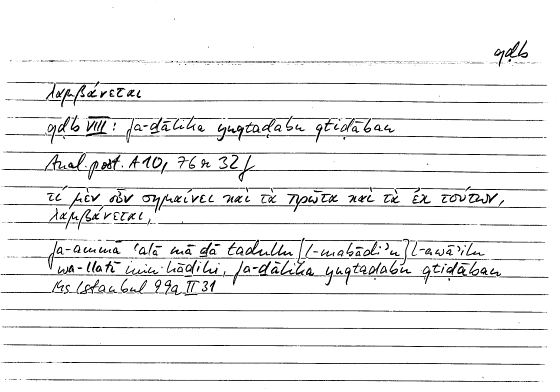 qḍb
λαμβάνεται
qḍb VIII: fa-ḏālika yuqtaḍabu qtiḍāban
Anal. post. A 10, 76 a 32 f
τί μὲν οὖν σημαίνει καὶ τὰ πρῶτα καὶ τὰ ἐκ τούτων,
λαμβάνεται,
fa-ammā ʿalā mā ḏā tadullu [l-mabādiʾu] l-awāʾilu
wa-llatī min hāḏihi, fa-ḏālika yuqtaḍabu qtiḍāban
Ms Istanbul 99a II 31